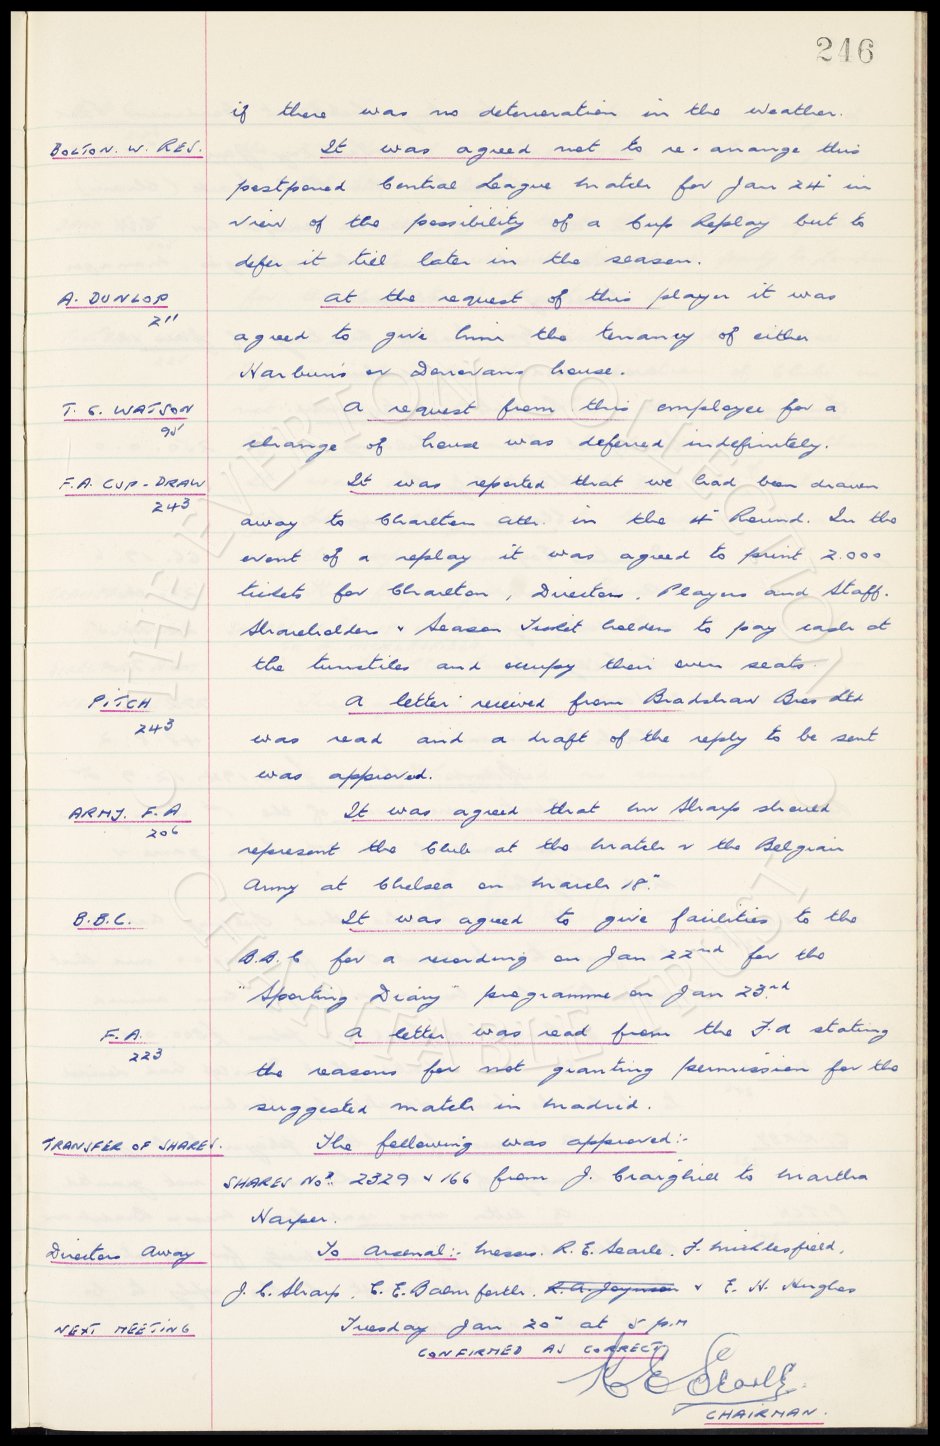 246
if there was no deterioration in the weather.
BOLTON. W. RES. It was agreed not to re-arrange this
postponed Central League match for Jan 24" in
view of the possibility of a Cup Replay but to
defer it till later in the season.
A. DUNLOP At the request of this player it was
211 agreed to give him the tenancy of either
Harburn's or Donovans house.
T. G. WATSON A request from this employee for a
95 change of house was deferred indefinitely.
F.A. CUP-DRAW It was reported that we had been drawn
243 away to Charlton Ath. in the 4" Round. In the
event of a replay it was agreed to print 2.000
tickets for Charlton, Directors, Players and Staff.
Shareholders & Season Ticket holders to pay cash at
the turnstiles and occupy their own seats.
PITCH A letter received from Bradshaw Bros Ltd
243 was read and a draft of the reply to be sent
was approved.
ARMY. F.A It was agreed that Mr Sharp should
206 represent the Club at the match v the Belgian
Army at Chelsea on March 18".
B.B.C. It was agreed to give facilities to the
B.B.C for a recording on Jan 22nd for the
"Sporting Diary" programme on Jan 23rd
F.A. A letter was read from the F.A stating
223 the reasons for not granting permission for the
suggested match in Madrid.
TRANSFER OF SHARES. The following was approved:-
SHARES Nos. 2329 & 166 from J. Craighill to Martha
Harper.
Directors Away To Arsenal:- Messrs. R.E. Searle. F. Micklesfield,
J.C. Sharp, C.E. Balmforth, R.A. Joynson & E. H. Hughes
NEXT MEETING Tuesday Jan 20" at 5 p.m
CONFIRMED AS CORRECT
R E Searle
CHAIRMAN.
THE EVERTON COLLECTION
CHARITABLE TRUST